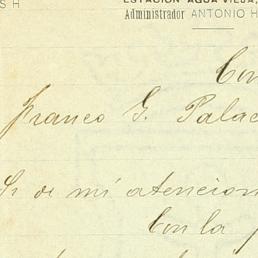 S H
ESTACIÓN AGUA VIEJA,
Administrador ANTONIO H
Con
Franco G. Palac
Sr de mi atencion
Con la